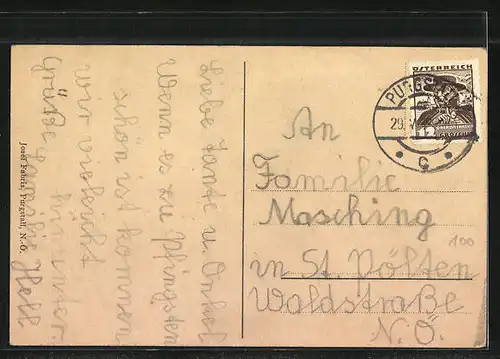 Liebe Tante u. Onkel
Wenn es zu Pfingsten
schön ist kommen
wir vielleicht
hinunter.
Grüße Familie Hell
Josef Fahrla, Purgstall, N.-Ö.
ÖSTERREICH
12
GROSCHEN
PURGSTALL
29.
C
An
Familie
Masching
in St. Pölten
Waldstraße
N.Ö.
100